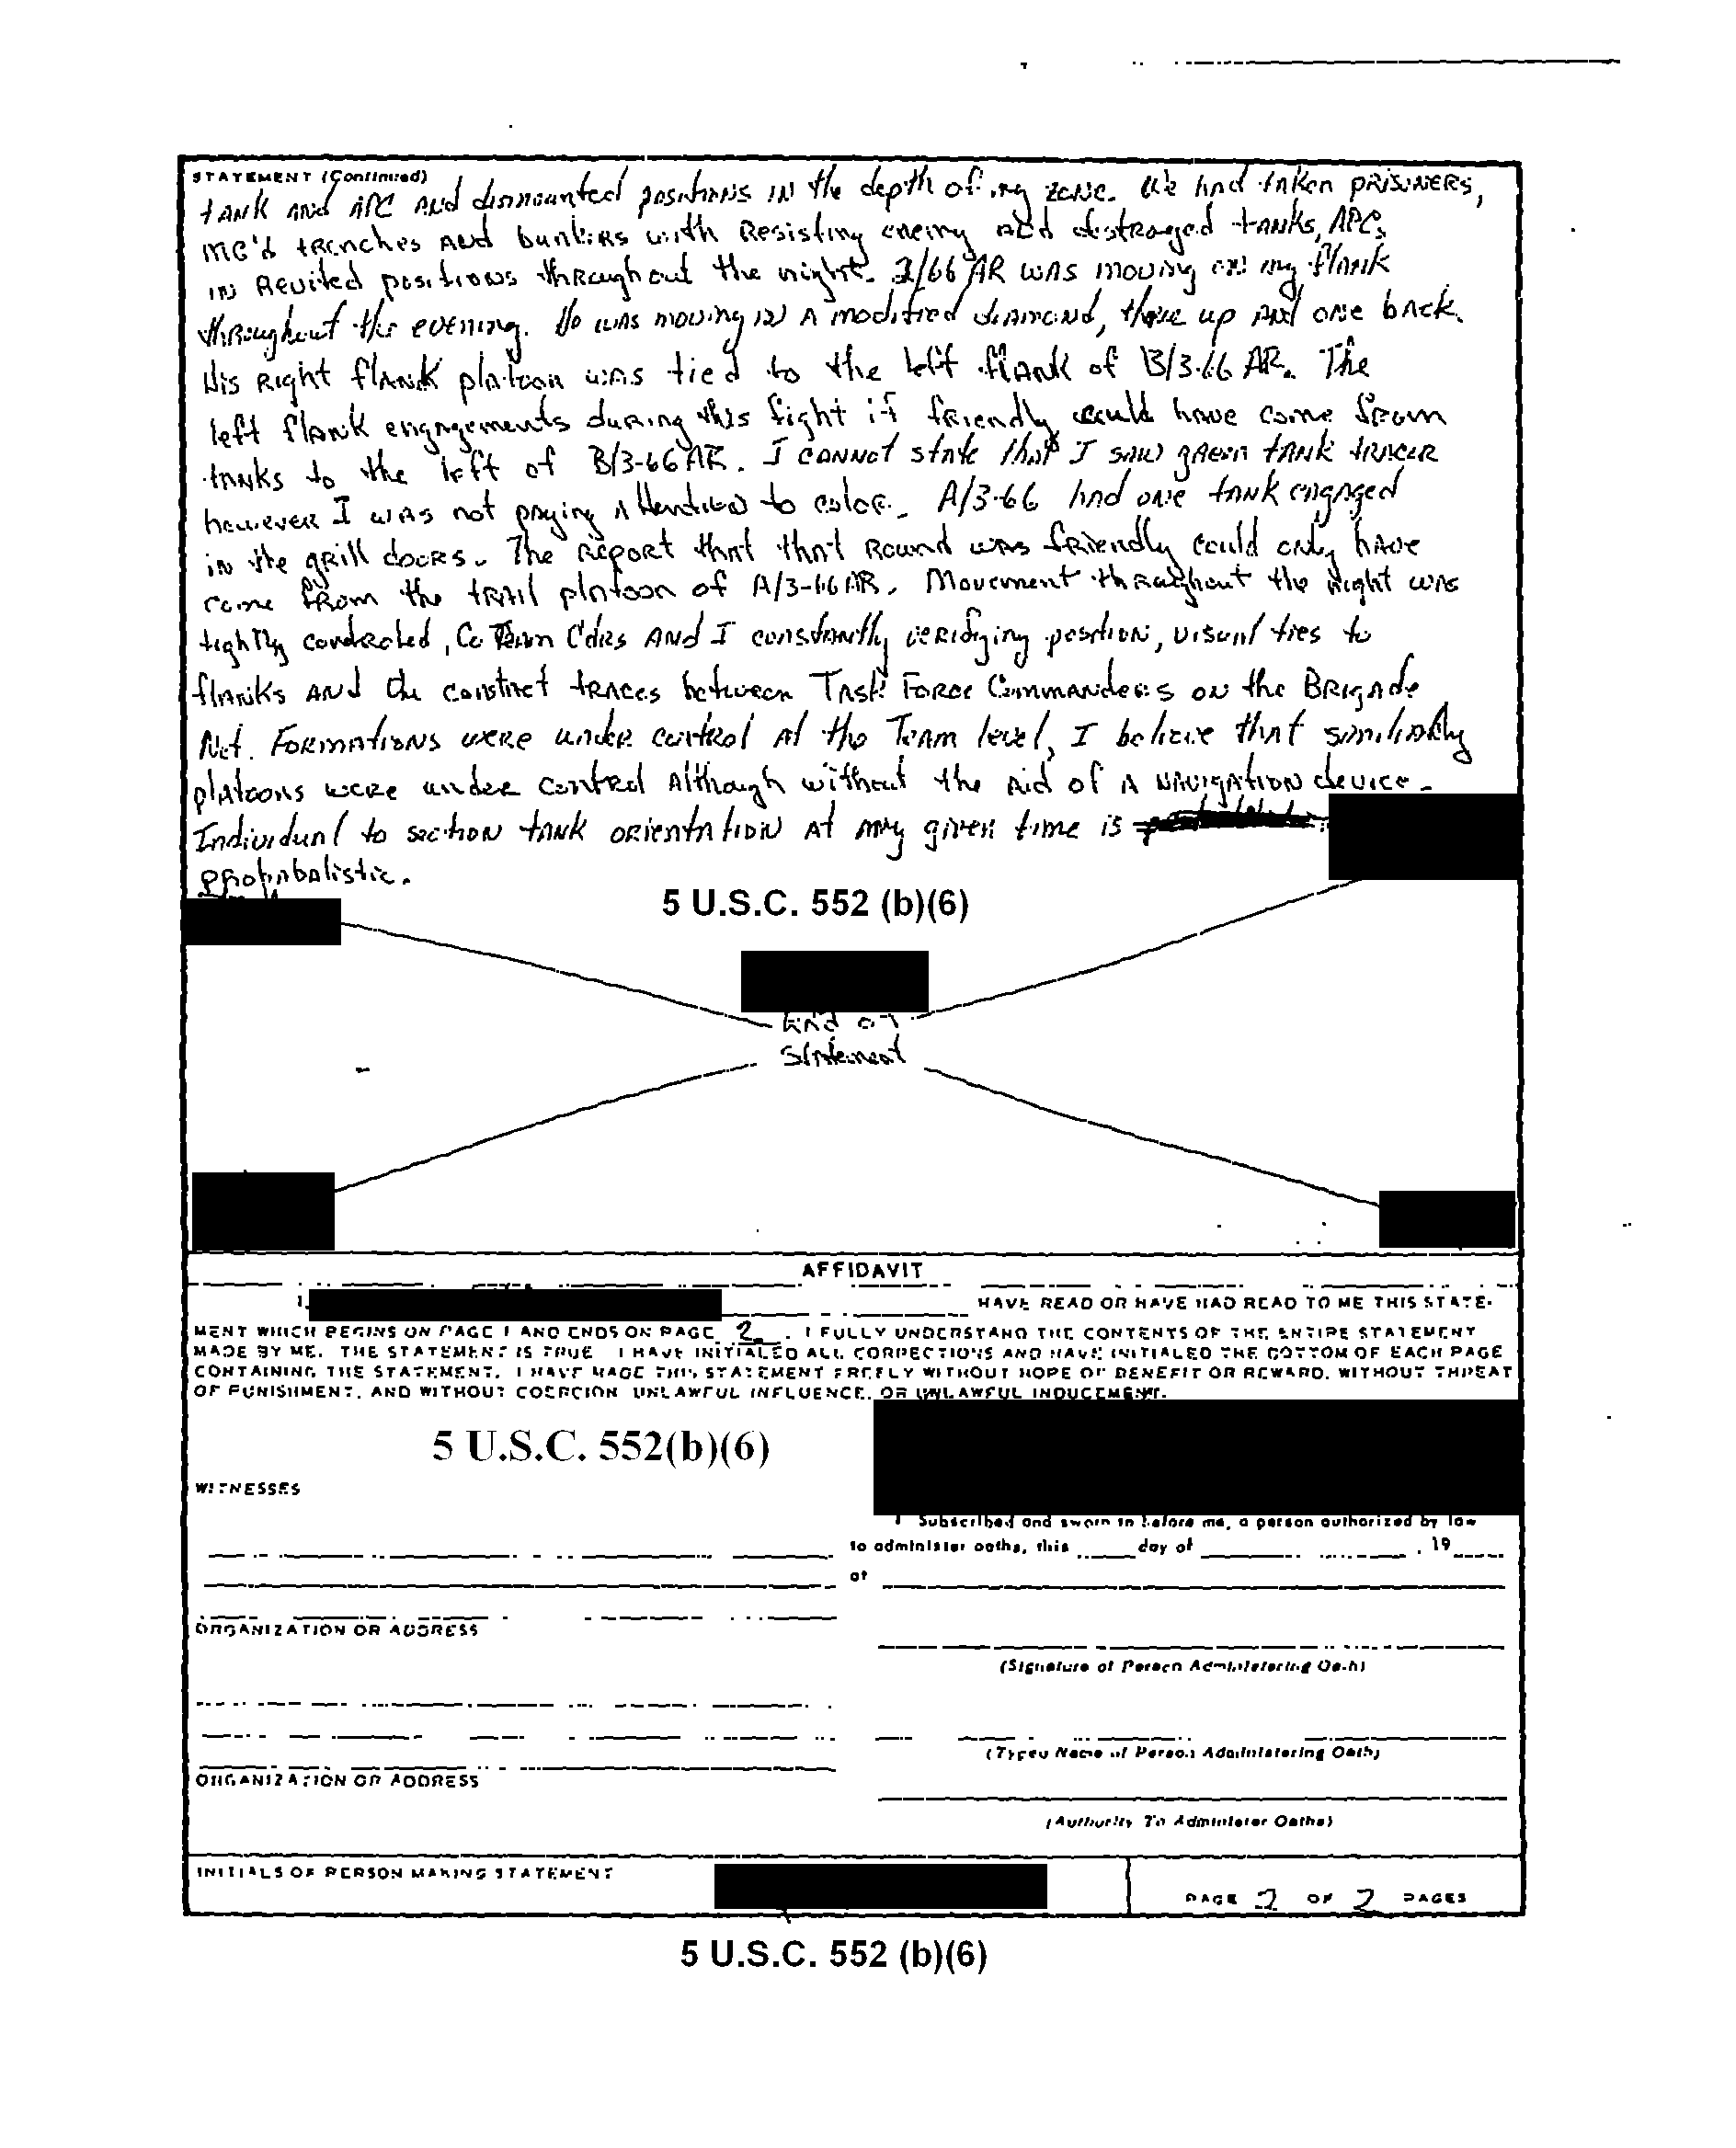 STATEMENT (Continued)
tank and APC and dismounted positions in the depth of my zone. We had taken prisoners,
MG'd trenches and bunkers with resisting enemy and destroyed tanks, APCs
in revited positions throughout the night. 2/66 AR was moving on my flank
throughout the evening. He was moving in a modified diamond, three up and one back.
His right flank platoon was tied to the left flank of B/3-66 AR. The
left flank engagements during this fight if friendly could have come from
tanks to the left of B/3-66 AR. I cannot state that I saw green tank tracer
however I was not paying attention to color. A/3-66 had one tank engaged
in the grill doors. The report that that round was friendly could only have
come from the trail platoon of A/3-66 AR. Movement throughout the night was
tightly controlled, Co Team Cdrs and I constantly verifying position, visual ties to
flanks and the constnct traces between Task Force Commanders on the Brigade
Net. Formations were under control at the Team level, I believe that similarly
platoons were under control although without the aid of a navigation device.
Individual to section tank orientation at any given time is
probabalistic.
5 U.S.C. 552 (b)(6)
End of
Statement
AFFIDAVIT
I, HAVE READ OR HAVE HAD READ TO ME THIS STATE-
MENT WHICH BEGINS ON PAGE 1 AND ENDS ON PAGE 2. I FULLY UNDERSTAND THE CONTENTS OF THE ENTIRE STATEMENT
MADE BY ME. THE STATEMENT IS TRUE I HAVE INITIALED ALL CORRECTIONS AND HAVE INITIALED THE BOTTOM OF EACH PAGE
CONTAINING THE STATEMENT. I HAVE MADE THIS STATEMENT FREELY WITHOUT HOPE OF BENEFIT OR REWARD, WITHOUT THREAT
OF PUNISHMENT, AND WITHOUT COERCION UNLAWFUL INFLUENCE, OR UNLAWFUL INDUCEMENT.
5 U.S.C. 552(b)(6)
WITNESSES
Subscribed and sworn to before me, a person authorized by law
to administer oaths, this day of , 19
at
ORGANIZATION OR ADDRESS
(Signature of Person Administering Oath)
(Typed Name of Person Administering Oath)
ORGANIZATION OR ADDRESS
(Authority To Administer Oaths)
INITIALS OF PERSON MAKING STATEMENT
PAGE 2 OF 2 PAGES
5 U.S.C. 552 (b)(6)